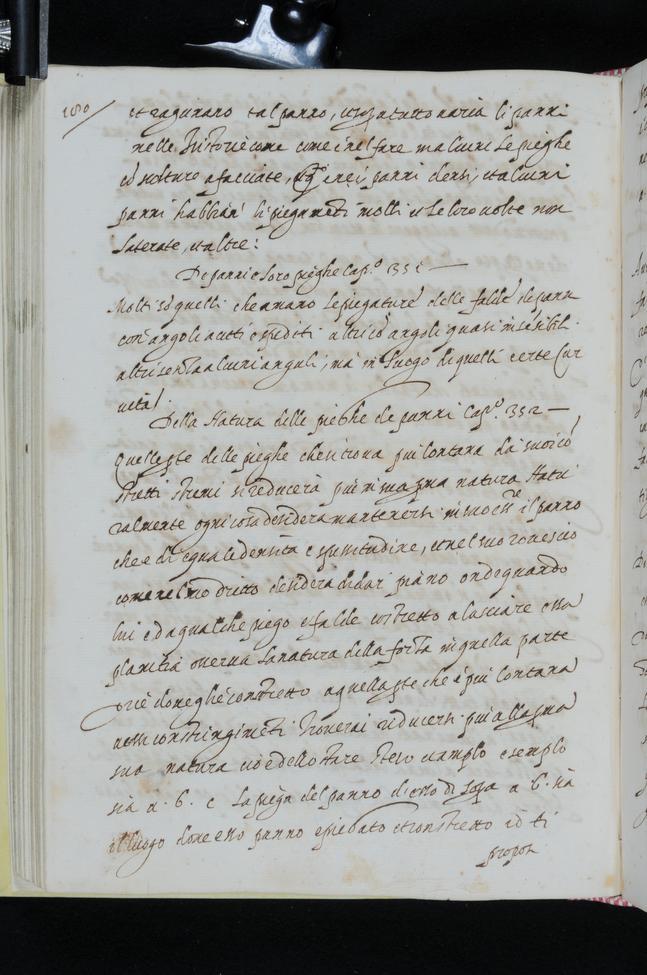 180
et ragunano tal panno, usasi tutto varia li panni
nelle historie come nel fare m alcuni le pieghe
cō rotture afacciate, e q. è nei panni densi, et alcuni
panni habbian li piegamēti molli et le loro uolte non
laterate, et altre:
De panni e loro pieghe Cap.º 351
Molti sō quelli che amano le piegature delle falde de panni
con angoli acuti e spediti altri cō angoli quasi insēsibil.
altri senza alcuni anguli, ma in luogo di quelli certe Cur
uita.
Della Natura delle pieghe de panni Cap.º 352
Quella pte delle pieghe che si troua piu lontana da suoi cō
stretti stremi si reducerà piu in sua pma natura Natu
ralmente ogni cosa desidera mantenersi in suo ess.re il panno
che è di equale densita e spissitudine, si nel suo rouescio
come nel suo dritto desidera di star piano onde quando
lui è da qualche piego o falde costretto a lasciare essa
planitia osserua la natura della forza in quella parte
oue doue glie constretto a quella pte che è piu lontana
a essi constringimēti trouerai ridursi piu alla sua
pma natura cioè dello stare steso et amplo esemplo
sia a. b. c la piega del panno di esso di sopa a b. sia
il luogo doue esso panno è piegato et constretto io ti
propon